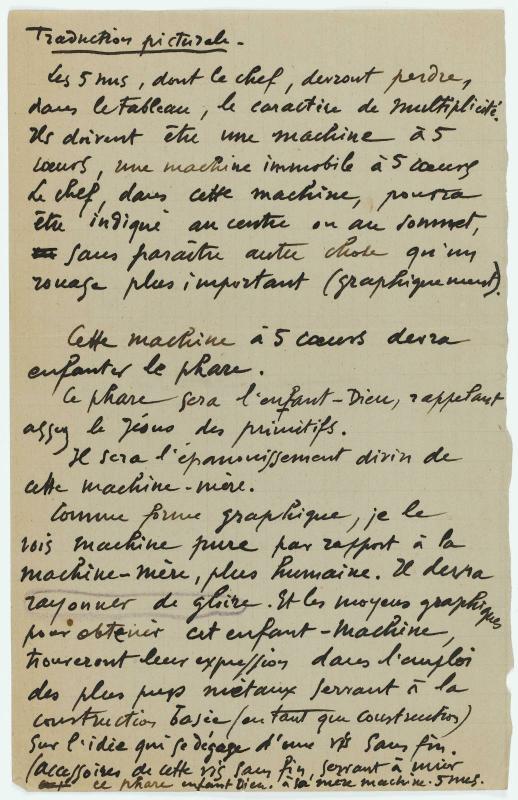 Traduction picturale.
Les 5 nus, dont le chef, devront perdre,
dans le tableau, le caractère de multiplicité.
Ils doivent être une machine à 5
cœurs, une machine immobile à 5 cœurs
Le chef, dans cette machine, pourra
être indiqué au centre ou au sommet,
sans paraître autre chose qu'un
rouage plus important (graphiquement).
Cette machine à 5 cœurs devra
enfanter le phare.
Ce phare sera l'enfant-Dieu, rappelant
assez le Jésus des primitifs.
Il sera l'épanouissement divin de
cette machine-mère.
Comme forme graphique, je le
vois machine pure par rapport à la
machine-mère, plus humaine. Il devra
rayonner de gloire. Et les moyens graphiques
pour obtenir cet enfant-machine,
trouveront leur expression dans l'emploi
des plus purs métaux servant à la
construction basée (en tant que construction)
sur l'idée qui se dégage d'une vis sans fin.
(accessoires de cette vis sans fin, servant à unir
ce phare enfant Dieu. à sa mère machine. 5 nus.